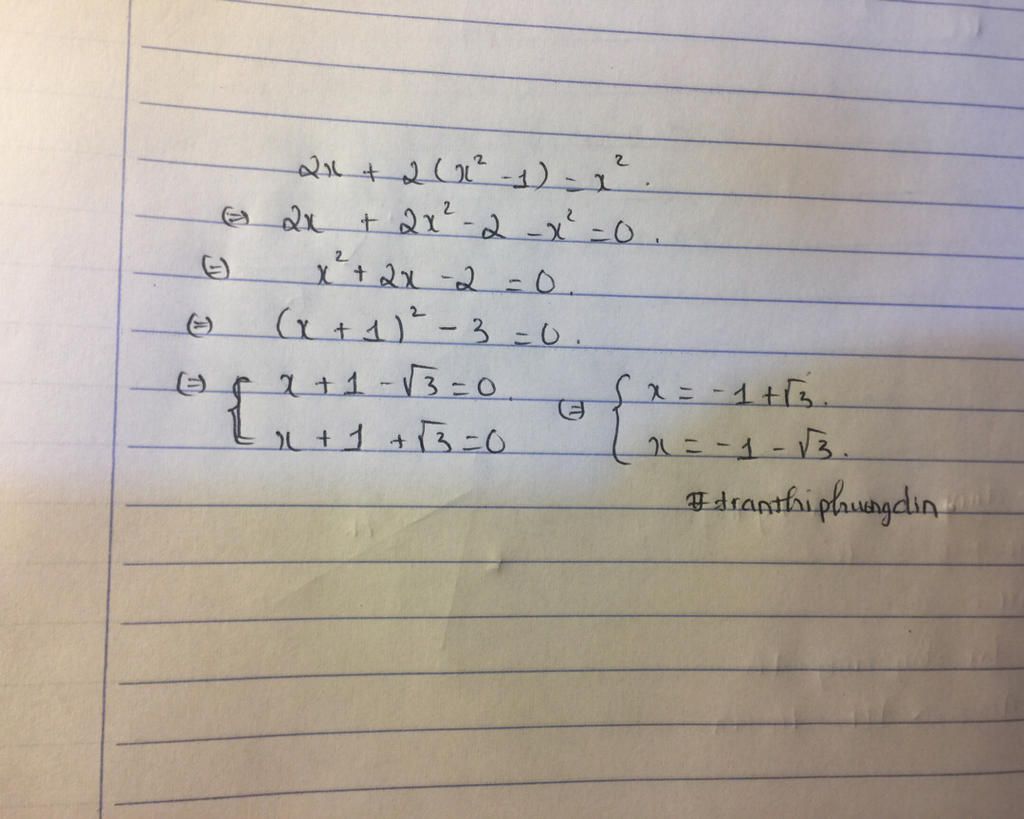 2x + 2(x² - 1) = x².
(=) 2x + 2x² - 2 - x² = 0.
(=) x² + 2x - 2 = 0.
(=) (x + 1)² - 3 = 0.
(=) { x + 1 - √3 = 0. (=) { x = -1 + √3.
x + 1 + √3 = 0 x = -1 - √3.
#tranthiphuongdin